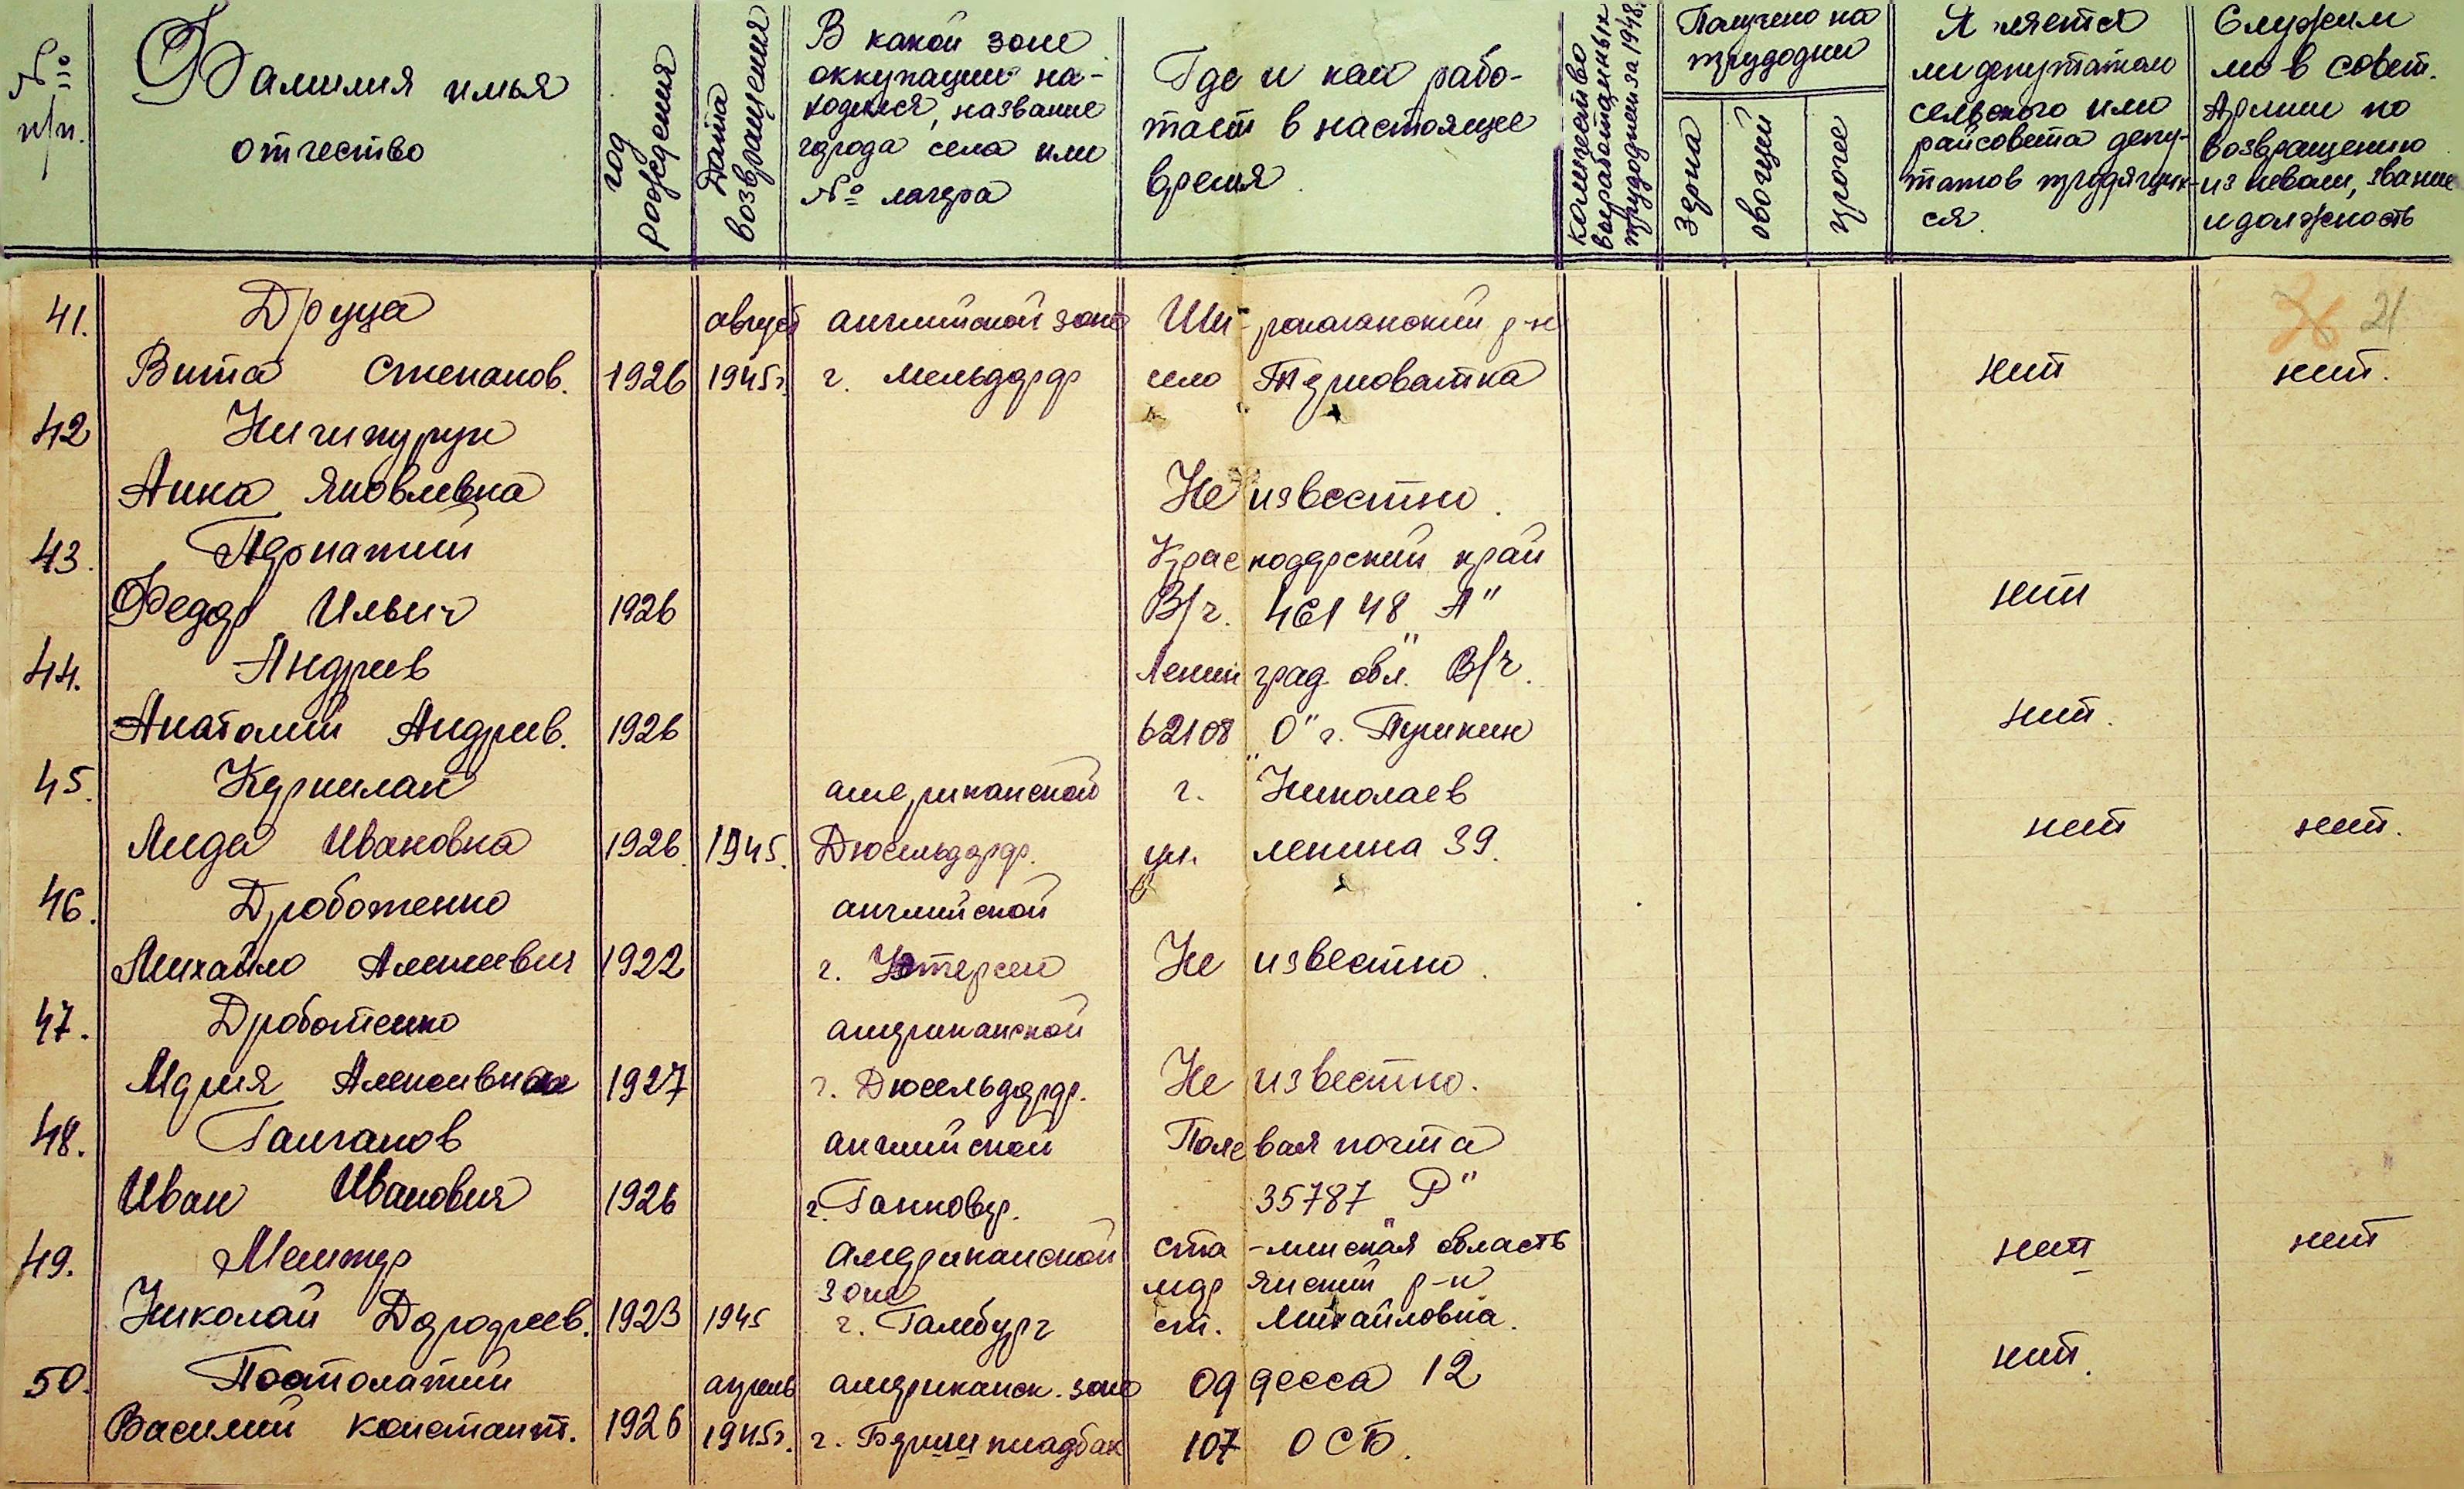 № п/п.
Фамилия имья
отчество
год рождения
Дата возвращения
В какой зоне
оккупации на-
ходился, название
города села или
№ лагера
Где и как рабо-
тает в настоящее
время
количество
выработанных
трудодней за 1948
Получено на
трудодни
зерна
овощей
прочее
ли депутатом
сельского или
райсовета депу-
татов трудящих-
ся.
Служил
ли в совет.
Армии по
возвращению
из неволи, звание
и должность
41. Друца август английской зоне
21
Вита Степанов. 1926 1945г. г. село Терноватка нет нет.
42 Ничипурук
Анна Яковлевна Не известно.
43. Краснодарский край
Федор Ильич 1926 В/ч. 46148 „А" нет
44. Андреев Ленинград обл. В/ч.
Анатолий Андреев. 1926 62108 „О" г. Пушкин нет.
45. Корнилак американской г. Николаев
Лида Ивановна 1926. 1945. Дюсельдорф. ул. ленина 39. нет нет.
46. Дроботенко английской
Михайло Алексеевич 1922 г. Не известно.
47. Дроботенко американской
Мария Алексивна 1927 г. Дюсельдорф. Не известно.
48. английской Полевая почта
Иван Иванович 1926 г. Ганновер. 35787 „Р"
49. американской ста-линская область нет нет
зоне рянский р-н
Николай Дорофеев. 1923 1945 г. Гамбург ст. Михайловка.
50. Постолатий апрель американск. зоне Оддесса 12 нет.
Василий констант. 1926 1945г. г. 107 ОСБ.